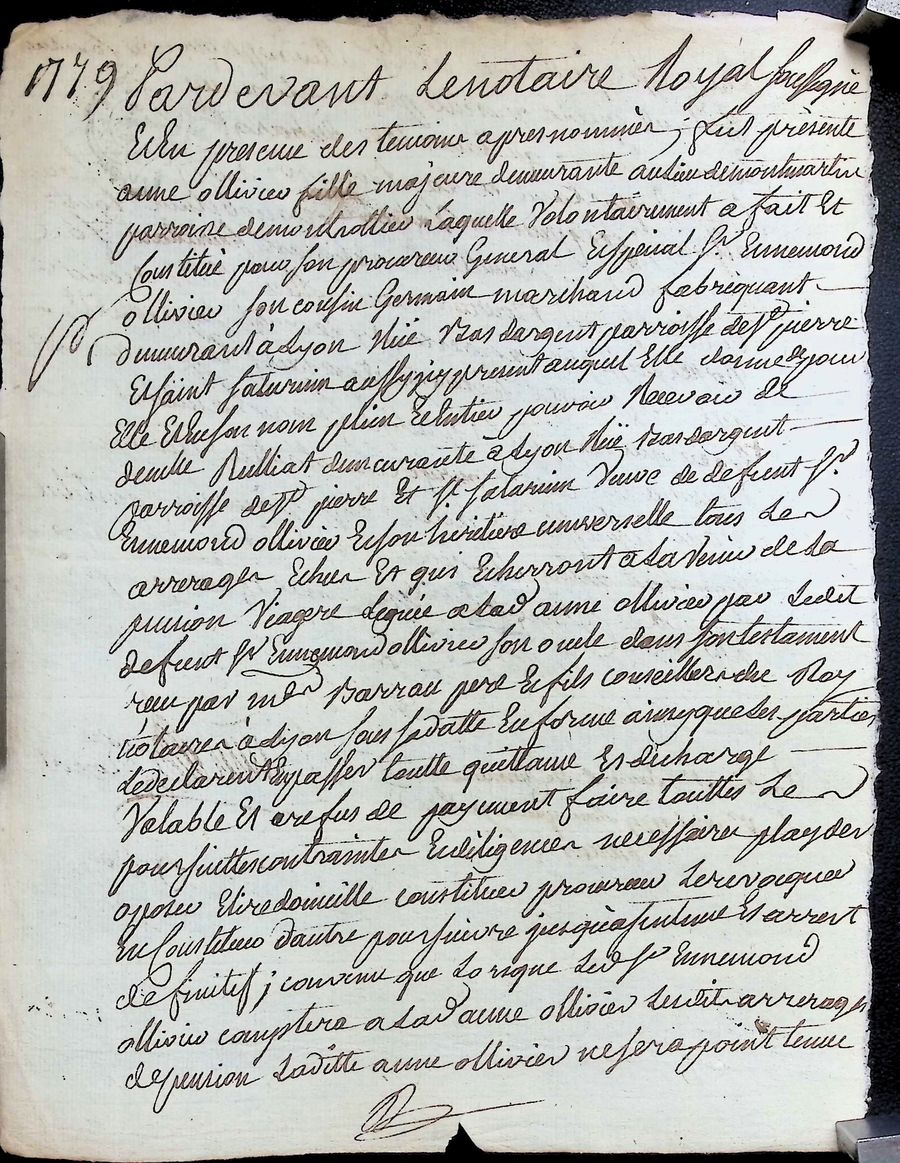 1779 Pardevant Le notaire Royal soussigné
Et En presence des temoins apres nommés ; fut présente
anne ollivier fille majeure demeurante au lieu de montmartin
parroisse de montrottier Laquelle Volontairement a fait Et
Constitué pour son procureur General Et spécial Sr. Ennemond
ollivier son cousin Germain marchand fabriquant
demeurant à Lyon Rüe Bas dargent parroisse de St pierre
Et saint saturnin aussy icy present auquel Elle donne pour
Elle Et En son nom plein Et Entier pouvoir Recevoir de
demlle Rulliat demeurante à Lyon Rüe Bas dargent
parroisse de St pierre Et St saturnin Veuve de defunt Sr.
Ennemond ollivier Et son heritiere universelle tous Les
arrerages Echus Et qui Echerront a La Venir de La
pension Viagere Leguée a Lad anne ollivier par Ledit
defunt Sr Ennemond ollivier son oncle dans son testament
recu par mes Barrau pere Et fils conseillers du Roy
notaires à Lyon sous sa datte En forme ainsy que Les parties
Le declarent En passer toutte quittance Et decharge
Valable Et a refus de payment faire touttes Les
poursuittes contraintes Et diligences necessaires playder
opposer Elire domicille constituer procureur Le revocquer
En Constituer dautre poursuivre jusqu'a sentence Et arrest
definitif ; convenu que Lorsque Led Sr Ennemond
ollivier comptera a Lad anne ollivier Lesdits arrerages
de pension Laditte anne ollivier ne sera point tenue